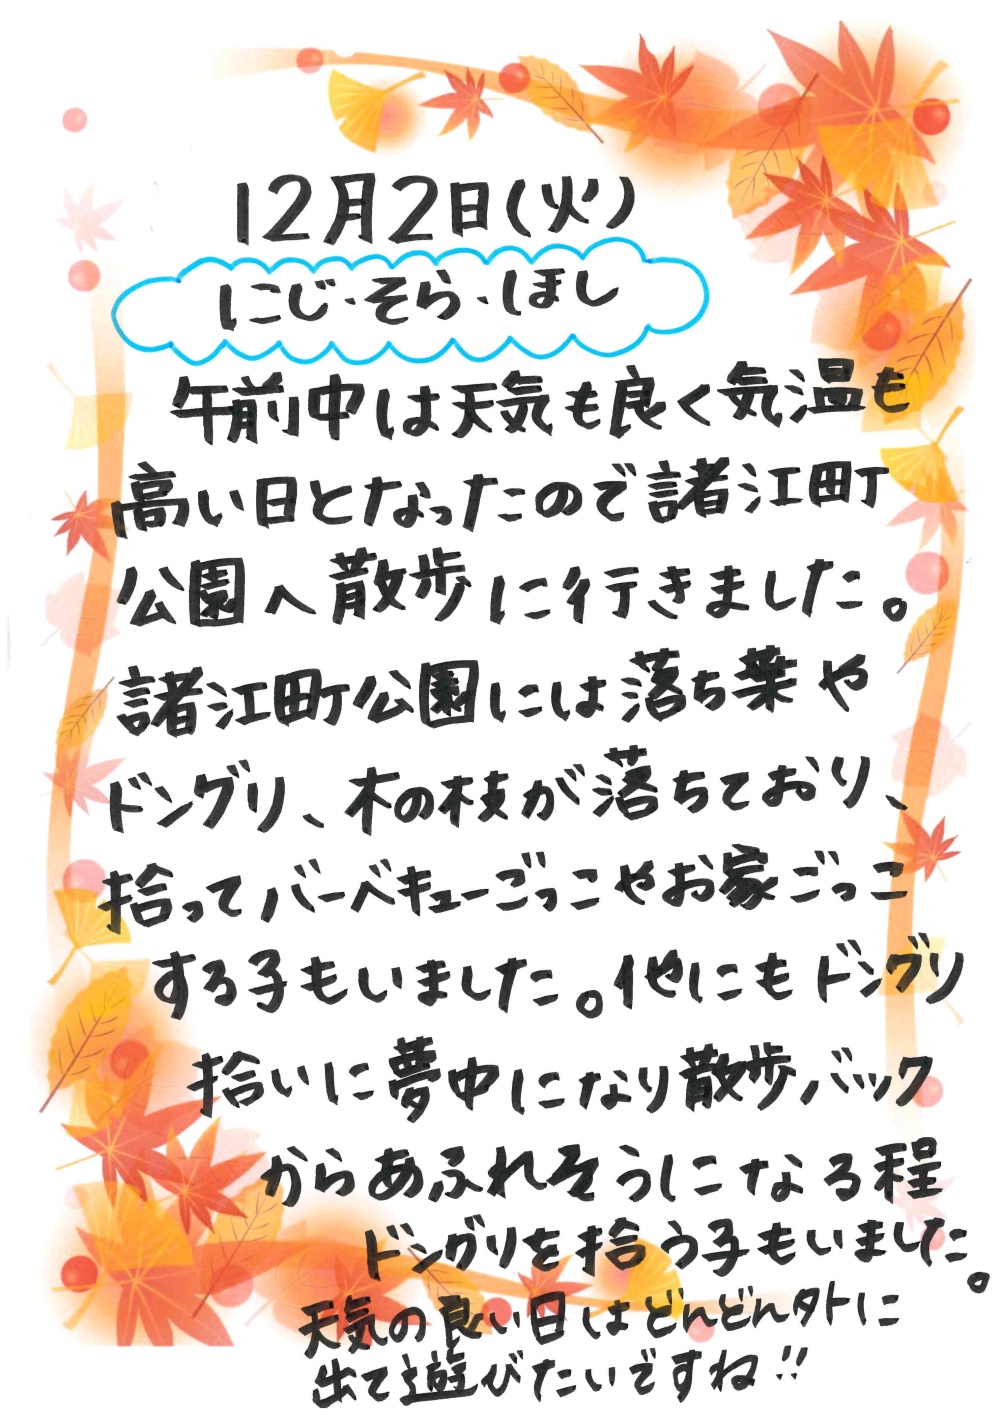 12月2日(火)
にじ・そら・ほし
午前中は天気も良く気温も
高い日となったので諸江町
公園へ散歩に行きました。
諸江町公園には落ち葉や
ドングリ、木の枝が落ちており、
拾ってバーベキューごっこやお家ごっこ
する子もいました。他にもドングリ
拾いに夢中になり散歩バック
からあふれそうになる程
ドングリを拾う子もいました。
天気の良い日はどんどん外に
出て遊びたいですね!!